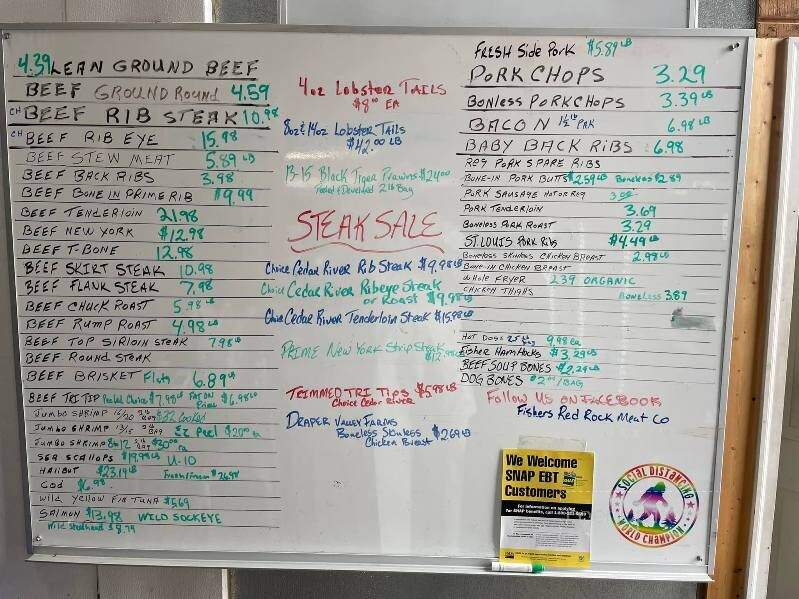 4.39 LEAN GROUND BEEF
BEEF GROUND ROUND 4.59
CH BEEF RIB STEAK 10.98
CH BEEF RIB EYE 15.98
BEEF STEW MEAT 5.89 LB
BEEF BACK RIBS 3.98
BEEF BONE IN PRIME RIB $9.99
BEEF TENDERLOIN 21.98
BEEF NEW YORK $12.98
BEEF T-BONE 12.98
BEEF SKIRT STEAK 10.98
BEEF FLANK STEAK 7.98
BEEF CHUCK ROAST 5.98 LB
BEEF RUMP ROAST 4.98 LB
BEEF TOP SIRLOIN STEAK 7.98 LB
BEEF ROUND STEAK
BEEF BRISKET Flats 6.89 LB
BEEF TRI TIP Peeled Choice $7.98 LB FAT ON Prime $6.98 LB
JUMBO SHRIMP 16/20 2 lb BAG $32 Cooked
JUMBO SHRIMP 13/15 2 lb BAG EZ Peel $20.00 ea
JUMBO SHRIMP 8-12 2 lb BAG $30.00 ea
SEA SCALLOPS $19.98 LB U-10
HALIBUT $23.19 LB
COD $6.98
Wild Yellow FIN TUNA $5.69
SALMON $13.98 WILD SOCKEYE
Wild Steelhead $8.79
4oz Lobster TAILS
$8.00 EA
8oz & 14oz Lobster TAILS
$42.00 LB
13-15 Black Tiger Prawns $24.00
Peeled & Deveined 2 lb Bag
STEAK SALE
Choice Cedar River Rib Steak $9.98 LB
Choice Cedar River Ribeye Steak
or Roast $9.98 LB
Choice Cedar River Tenderloin Steak $15.98 LB
PRIME New York Strip Steak
$12.98
TRIMMED TRI TIPS $5.98 LB
Choice Cedar River
DRAPER VALLEY FARMS
Boneless Skinless $2.69 LB
Chicken Breast
FRESH Side Pork $5.89 LB
PORK CHOPS 3.29
BONLESS PORKCHOPS 3.39 LB
BACON 1 1/2 lb PAK 6.98 LB
BABY BACK RIBS 6.98
REG PORK SPARE RIBS
BONE-IN PORK BUTTS $2.59 LB Boneless $2.89
PORK SAUSAGE HOT OR REG
PORK TENDERLOIN 3.69
BONELESS PORK ROAST 3.29
ST. LOUIS PORK RIBS $4.49 LB
BONELESS SKINLESS CHICKEN BREAST 2.98 LB
BONE-IN CHICKEN BREAST
WHOLE FRYER 2.39 ORGANIC
CHICKEN THIGHS Boneless 3.89
HOT DOGS 9.98 ea
FISHER HAM HOCKS $3.29 LB
BEEF SOUP BONES $2.29 LB
DOG BONES /BAG
FOLLOW US ON FACEBOOK
Fishers Red Rock Meat Co
We Welcome
SNAP EBT
Customers
For information on applying
for SNAP benefits, call
SOCIAL DISTANCING
WORLD CHAMPION